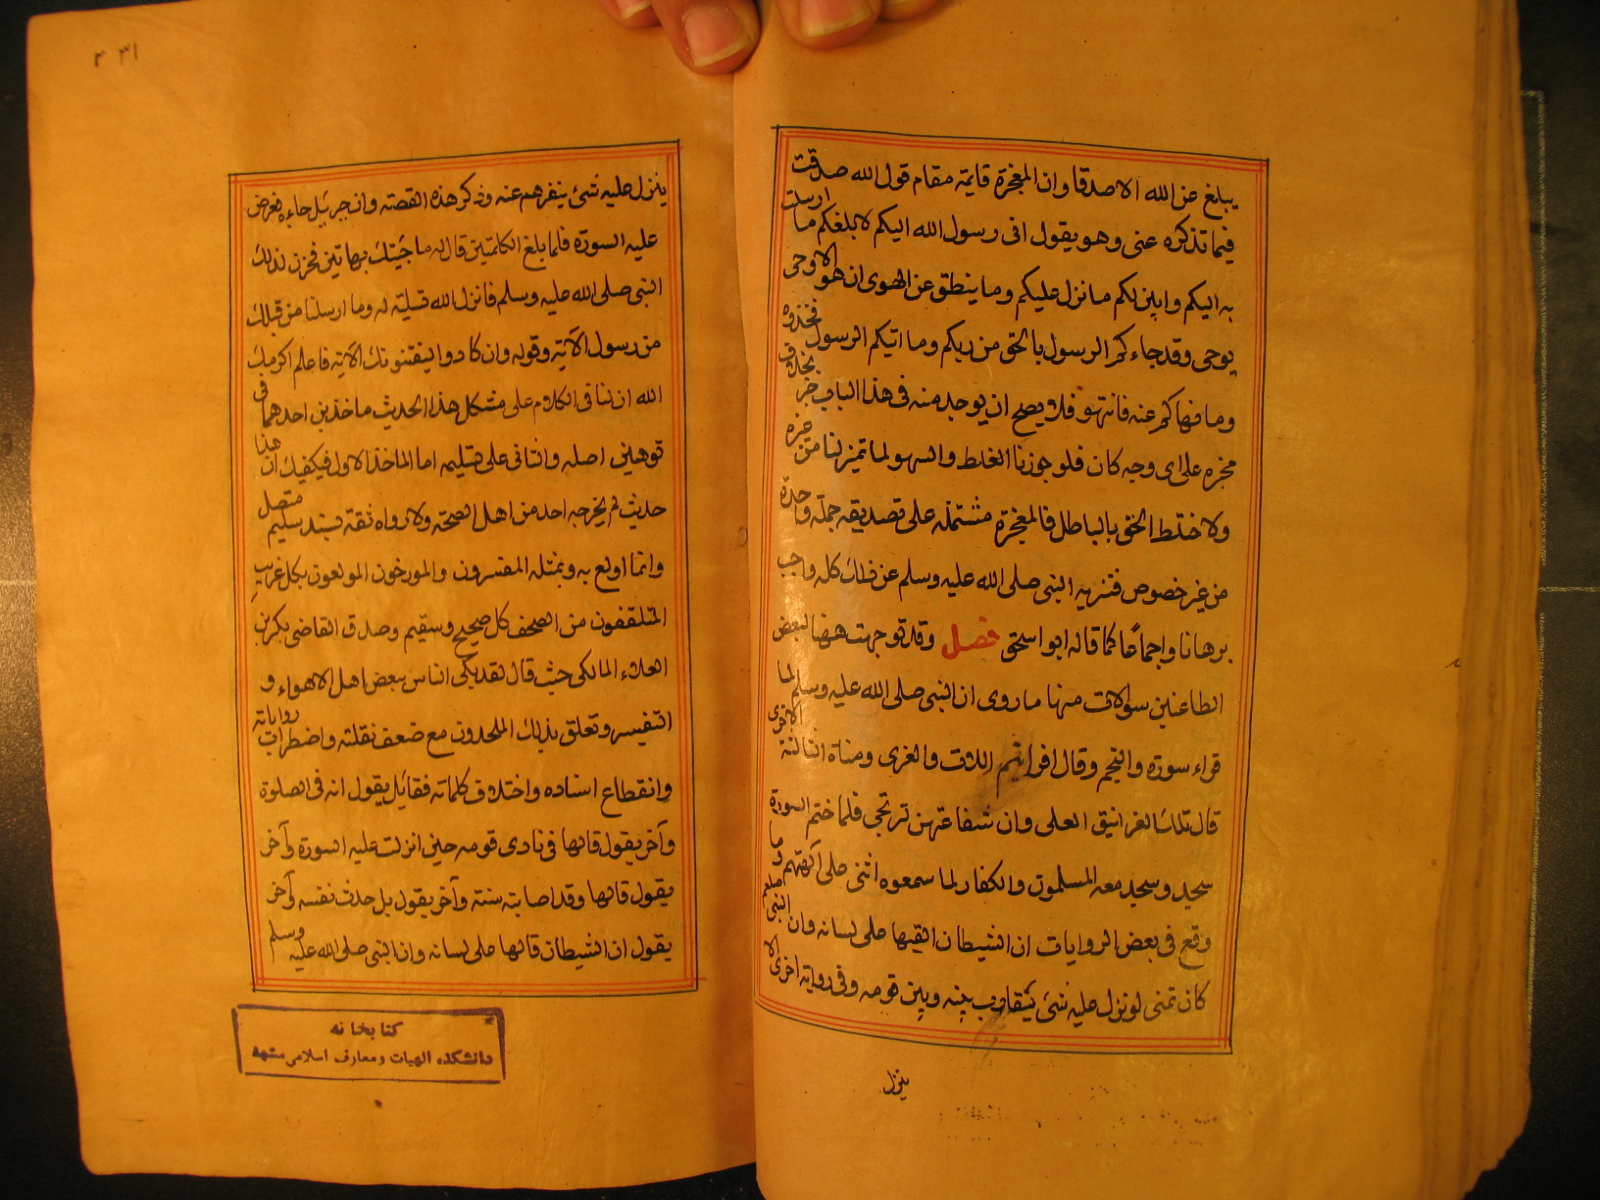 يبلغ عن الله الا صدقا وان المعجزة قايمة مقام قول الله صدقت
فيما تذكره عنى وهو يقول انى رسول الله اليكم لا بلغكم ما ارسلت
به اليكم وابين لكم ما نزل عليكم وما ينطق عن الهوى ان هو الا وحى
يوحى وقد جاءكم الرسول بالحق من ربكم وما اتيكم الرسول فخذوه
وما نهاكم عنه فانتهو فلا يصح ان يوجد منه فى هذا الباب خبر بخلاف
مخبره على اى وجه كان فلو جوزنا الغلط والسهو لما تميز لنا من غيره
ولا ختلط الحق بالباطل فالمعجزة مشتملة على تصديقه جملة واحدة
من غير خصوص فتنزيه النبى صلى الله عليه وسلم عن ذلك كله واجب
برهانا واجماعا كما قاله ابو اسحق فصل وقد توجهت ههنا لبعض
الطاعنين سؤالات منها ما روى ان النبى صلى الله عليه وسلم لما
قراء سورة والنجم وقال افرايتم اللات والعزى ومناة الثالثة الاخرى
قال تلك الغرانيق العلى وان شفاعتهن ترتجى فلما ختم السورة
سجد وسجد معه المسلمون والكفار لما سمعوه اثنى على آلهتهم وما
وقع فى بعض الروايات ان الشيطان القيها على لسانه وان النبى صلعم
كان تمنى لو نزل عليه شئ يتقارب بينه وبين قومه وفى رواية اخرى الا
ينزل
٤٣١
ينزل عليه شئ ينفرهم عنه وذكر هذه القصته وان جبرئيل جاءه فعرض
عليه السورة فلما بلغ الكلمتين قال له ما جئتك بهاتين فحزن لذلك
النبى صلى الله عليه وسلم فانزل الله تسليته له وما ارسلنا من قبلك
من رسول الآية وقوله وان كادوا ليفتنونك الآية فاعلم اكرمك
الله ان لنا فى الكلام على مشكل هذا الحديث ماخذين احدهما فى
توهين اصله والثانى على تسليمه اما الماخذ الاول فيكفيك ان هذا
حديث لم يخرجه احد من اهل الصحته ولا رواه ثقة بسند سليم متصل
وانما اولع به وبمثله المفسرون والمورخون المولعون بكل غريب
المتلقفون من الصحف كل صحيح وسقيم وصدق القاضى بكر بن
العلاء المالكى حيث قال لقد بكى الناس ببعض اهل الاهواء و
التفسير وتعلق بذلك الملحدون مع ضعف نقلته واضطراب رواياته
وانقطاع اسناده واختلاف كلماته فقايل يقول انه فى الصلوة
وآخر يقول قالها فى نادى قومه حين انزلت عليه السورة وآخر
يقول قالها وقد اصابته سنة وآخر يقول بل حدث نفسه وآخر
يقول ان الشيطان قالها على لسانه وان النبى صلى الله عليه وسلم
كتابخانه
دانشكده الهيات ومعارف اسلامى مشهد